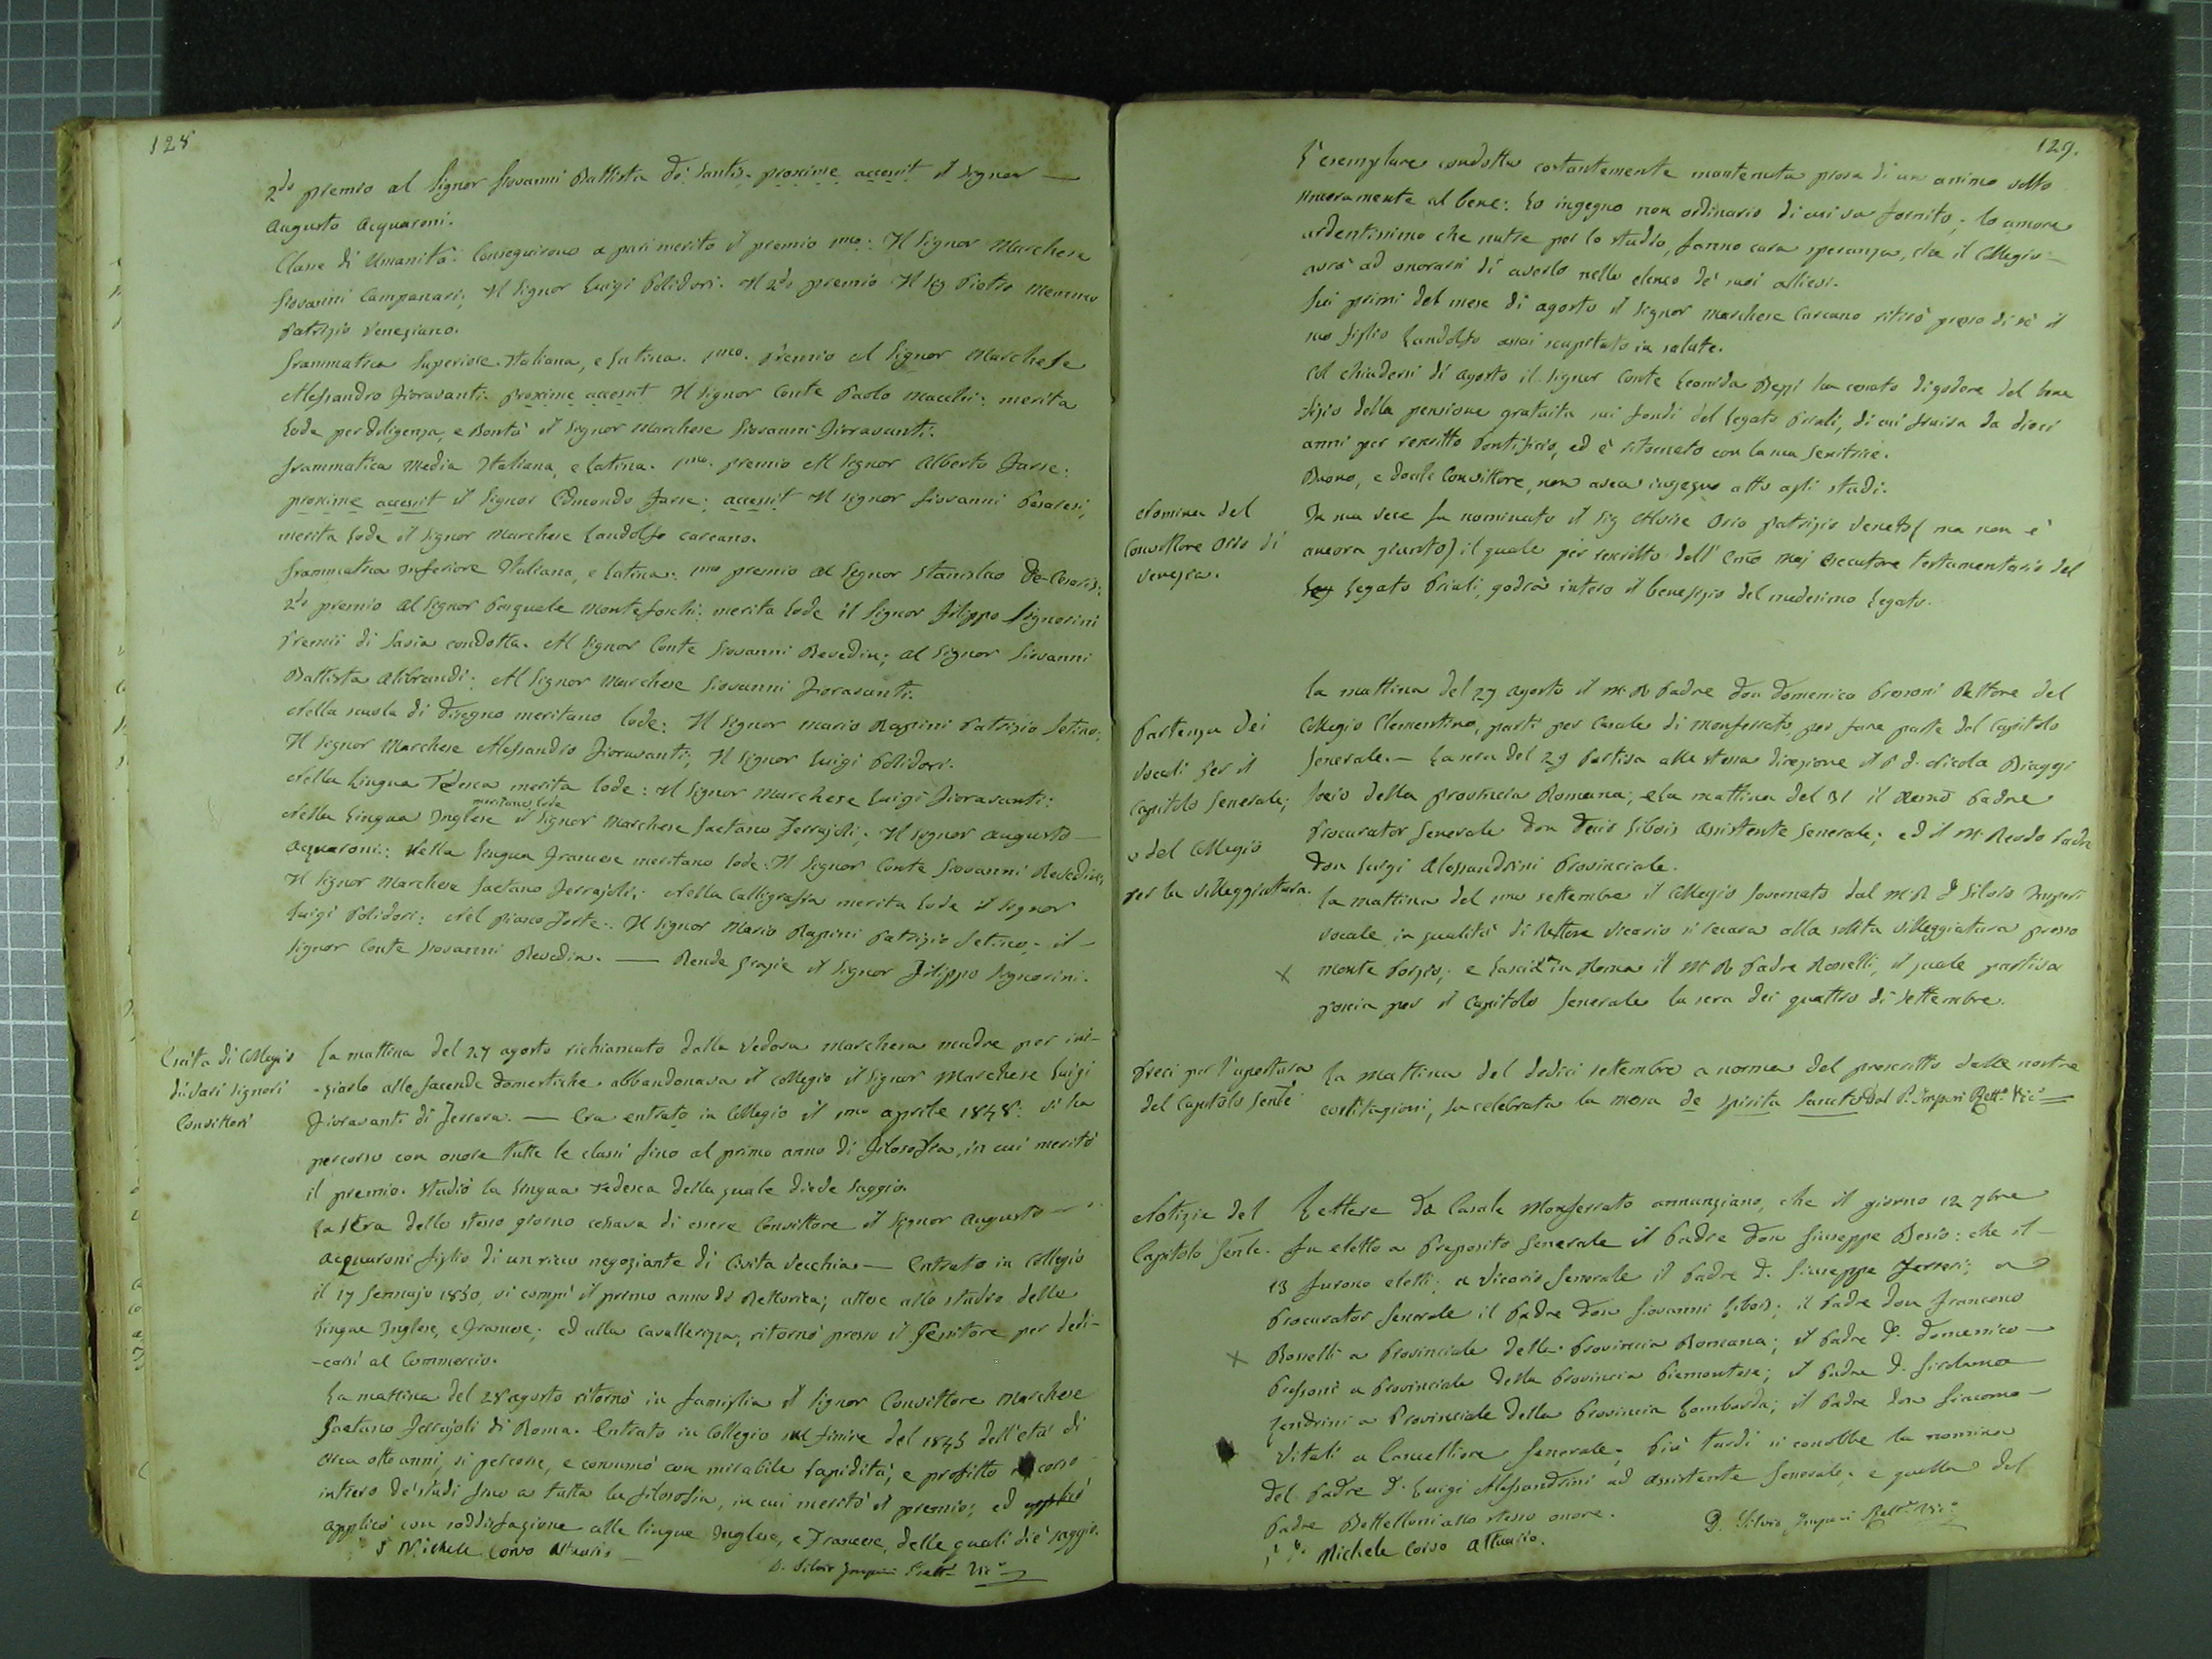 128
2do premio al Signor Giovanni Battista De Santis. proxime accessit il Signor —
Augusto Acquaroni.
Classe di Umanità. Conseguirono a pari merito il premio 1mo: Il Signor Marchese
Giovanni Campanari; Il Signor Luigi Polidori. Il 2do premio Il Sig Pietro Memmo
Patrizio Veneziano.
Grammatica Superiore Italiana, e Latina. 1mo. Premio Al Signor Marchese
Alessandro Fioravanti. proxime accessit Il Signor Conte Paolo Macchi: merita
Lode per diligenza, e Bontà il Signor Marchese Giovanni Fioravanti.
Grammatica Media Italiana, e Latina. 1mo. premio Al Signor Alberto Jarre:
proxime accessit il Signor Edmondo Jarre; accessit Il Signor Giovanni Pesaresi,
merita Lode il Signor Marchese Landolfo Carcano.
Grammatica Inferiore Italiana, e Latina: 1mo premio Al Signor Stanislao De-Cesaris:
2do premio Al Signor Pasquale Monteforchi: merita Lode il Signor Filippo Signorini
Premii di Savia condotta. Al Signor Conte Giovanni Revedin; Al Signor Giovanni
Battista Alibrandi; Al Signor Marchese Giovanni Fioravanti.
Nella scuola di Disegno meritano lode: Il Signor Mario Rappini Patrizio Setino;
Il Signor Marchese Alessandro Fioravanti; Il Signor Luigi Polidori.
Nella Lingua Tedesca merita lode: Il Signor Marchese Luigi Fioravanti:
meritano lode
Nella Lingua Inglese il Signor Marchese Gaetano Ferrajoli; Il Signor Augusto —
Acquaroni: Nella Lingua Francese meritano lode: Il Signor Conte Giovanni Revedin;
Il Signor Marchese Gaetano Ferrajoli; Nella Calligrafia merita Lode il Signor
Luigi Polidori: Nel Piano Forte: Il Signor Mario Rappini Patrizio Setino; il —
Signor Conte Giovanni Revedin. — Rende grazie il Signor Filippo Signorini.
Uscita di Collegio
di vari Signori
Convittori
La mattina del 27 agosto richiamato dalla Vedova Marchesa madre per ini-
-ziarlo alle faccende domestiche. abbandonava il Collegio il Signor Marchese Luigi
Fioravanti di Ferrara. — Era entrato in Collegio il 1mo aprile 1848: vi ha
percorso con onore tutte le classi fino al primo anno di Filosofia, in cui meritò
il premio. Studiò la Lingua Tedesca della quale diede saggio.
La sera dello stesso giorno cessava di essere Convittore il Signor Augusto —
Acquaroni figlio di un ricco negoziante di Civita Vecchia — Entrato in Collegio
il 17 Gennajo 1850, vi compì il primo anno di Rettorica; attese allo studio delle
Lingue Inglese, e Francese; ed alla Cavallerizza; ritornò presso il Genitore per dedi-
-carsi al Commercio.
La mattina del 28 agosto ritornò in famiglia il Signor Convittore Marchese
Gaetano Ferrajoli di Roma. Entrato in Collegio sul finire del 1845 dell'età di
circa otto anni, vi percorse, e consumò con mirabile rapidità, e profitto il corso
intiero de' studi fino a tutta la filosofia, in cui meritò il premio; ed
applicò con soddisfazione alle lingue Inglese, e Francese, delle quali diè saggio.
Michele Corvo Attuario
D. Silvio Imperi Rett. Vic.
129.
L'esemplare condotta costantemente mantenuta prova di un animo volto
sinceramente al bene: Lo ingegno non ordinario di cui va fornito; lo amore
ardentissimo che nutre per lo studio, fanno cara speranza, che il Collegio —
avrà ad onorarsi di averlo nello elenco de' suoi allievi.
Sui primi del mese di agosto il Signor Marchese Carcano ritirò presso di sè il
suo figlio Landolfo assai scapitato in salute.
Col chiudersi di Agosto il Signor Conte Leonida Bezzi ha cessato di godere del bene
fizio della pensione gratuita sui fondi del Legato Priuli, di cui fruiva da dieci
anni per rescritto Pontificio, ed è ritornato con la sua Genitrice.
Buono, e docile Convittore, non avea ingegno atto agli studi.
Nomina del
Convittore Orio di
Venezia.
In sua vece fu nominato il Sig Alvise Orio patrizio Veneto (ma non è
ancora giunto) il quale per rescritto dell' Emo Maj Esecutore testamentario del
Leg Legato Priuli, godrà intero il benefizio del medesimo Legato.
Partenza dei
Vocali per il
Capitolo Generale;
e del Collegio
per la villeggiatura.
La mattina del 27 Agosto il M. R Padre Don Domenico Pressoni Rettore del
Collegio Clementino, partì per Casale di Monferrato, per fare parte del Capitolo
Generale. — La sera del 29 partiva alla stessa direzione il P D. Nicola Biaggi
Socio della Provincia Romana; e la mattina del 31 il Remo Padre
Procurator Generale Don Decio Libois Assistente Generale; ed il M. Revdo Padre
Don Luigi Alessandrini Provinciale.
La mattina del 1mo settembre il Collegio Governato dal M. R D Silvio Imperi
Vocale in qualità di Rettore Vicario si recava alla solita villeggiatura presso
× Monte Porzio; e lasciò in Roma il M R Padre Rosselli, il quale partiva
poscia per il Capitolo Generale la sera dei quattro di Settembre.
Preci per l'apertura
del Capitolo Genle
La Mattina del dodici settembre a norma del prescritto dalle nostre
costituzioni, fu celebrata la messa de Spiritu Sancto Dal P. Imperi Rett.e Vic.o
Notizie del
Capitolo Genle.
Lettere da Casale Monferrato annunziano, che il giorno 12 7bre
fu eletto a Preposito Generale il Padre Don Giuseppe Besio: che il —
13 furono eletti; a Vicario Generale il Padre D. Giuseppe Ferreri; a
Procurator Generale il Padre Don Giovanni Libois; il Padre Don Francesco
× Rosselli a Provinciale della Provincia Romana; il Padre D. Domenico —
Pressoni a Provinciale della Provincia Piemontese; il Padre D. Girolamo
Zendrini a Provinciale della Provincia Lombarda; il Padre Don Giacomo —
Vitali a Cancelliere Generale; Più tardi si conobbe la nomina
del Padre D. Luigi Alessandrini ad Assistente Generale; e quella del
Padre Bettelloni allo stesso onore.
D. Silvio Imperi Rett.e Vic.o
Michele Corvo Attuario.